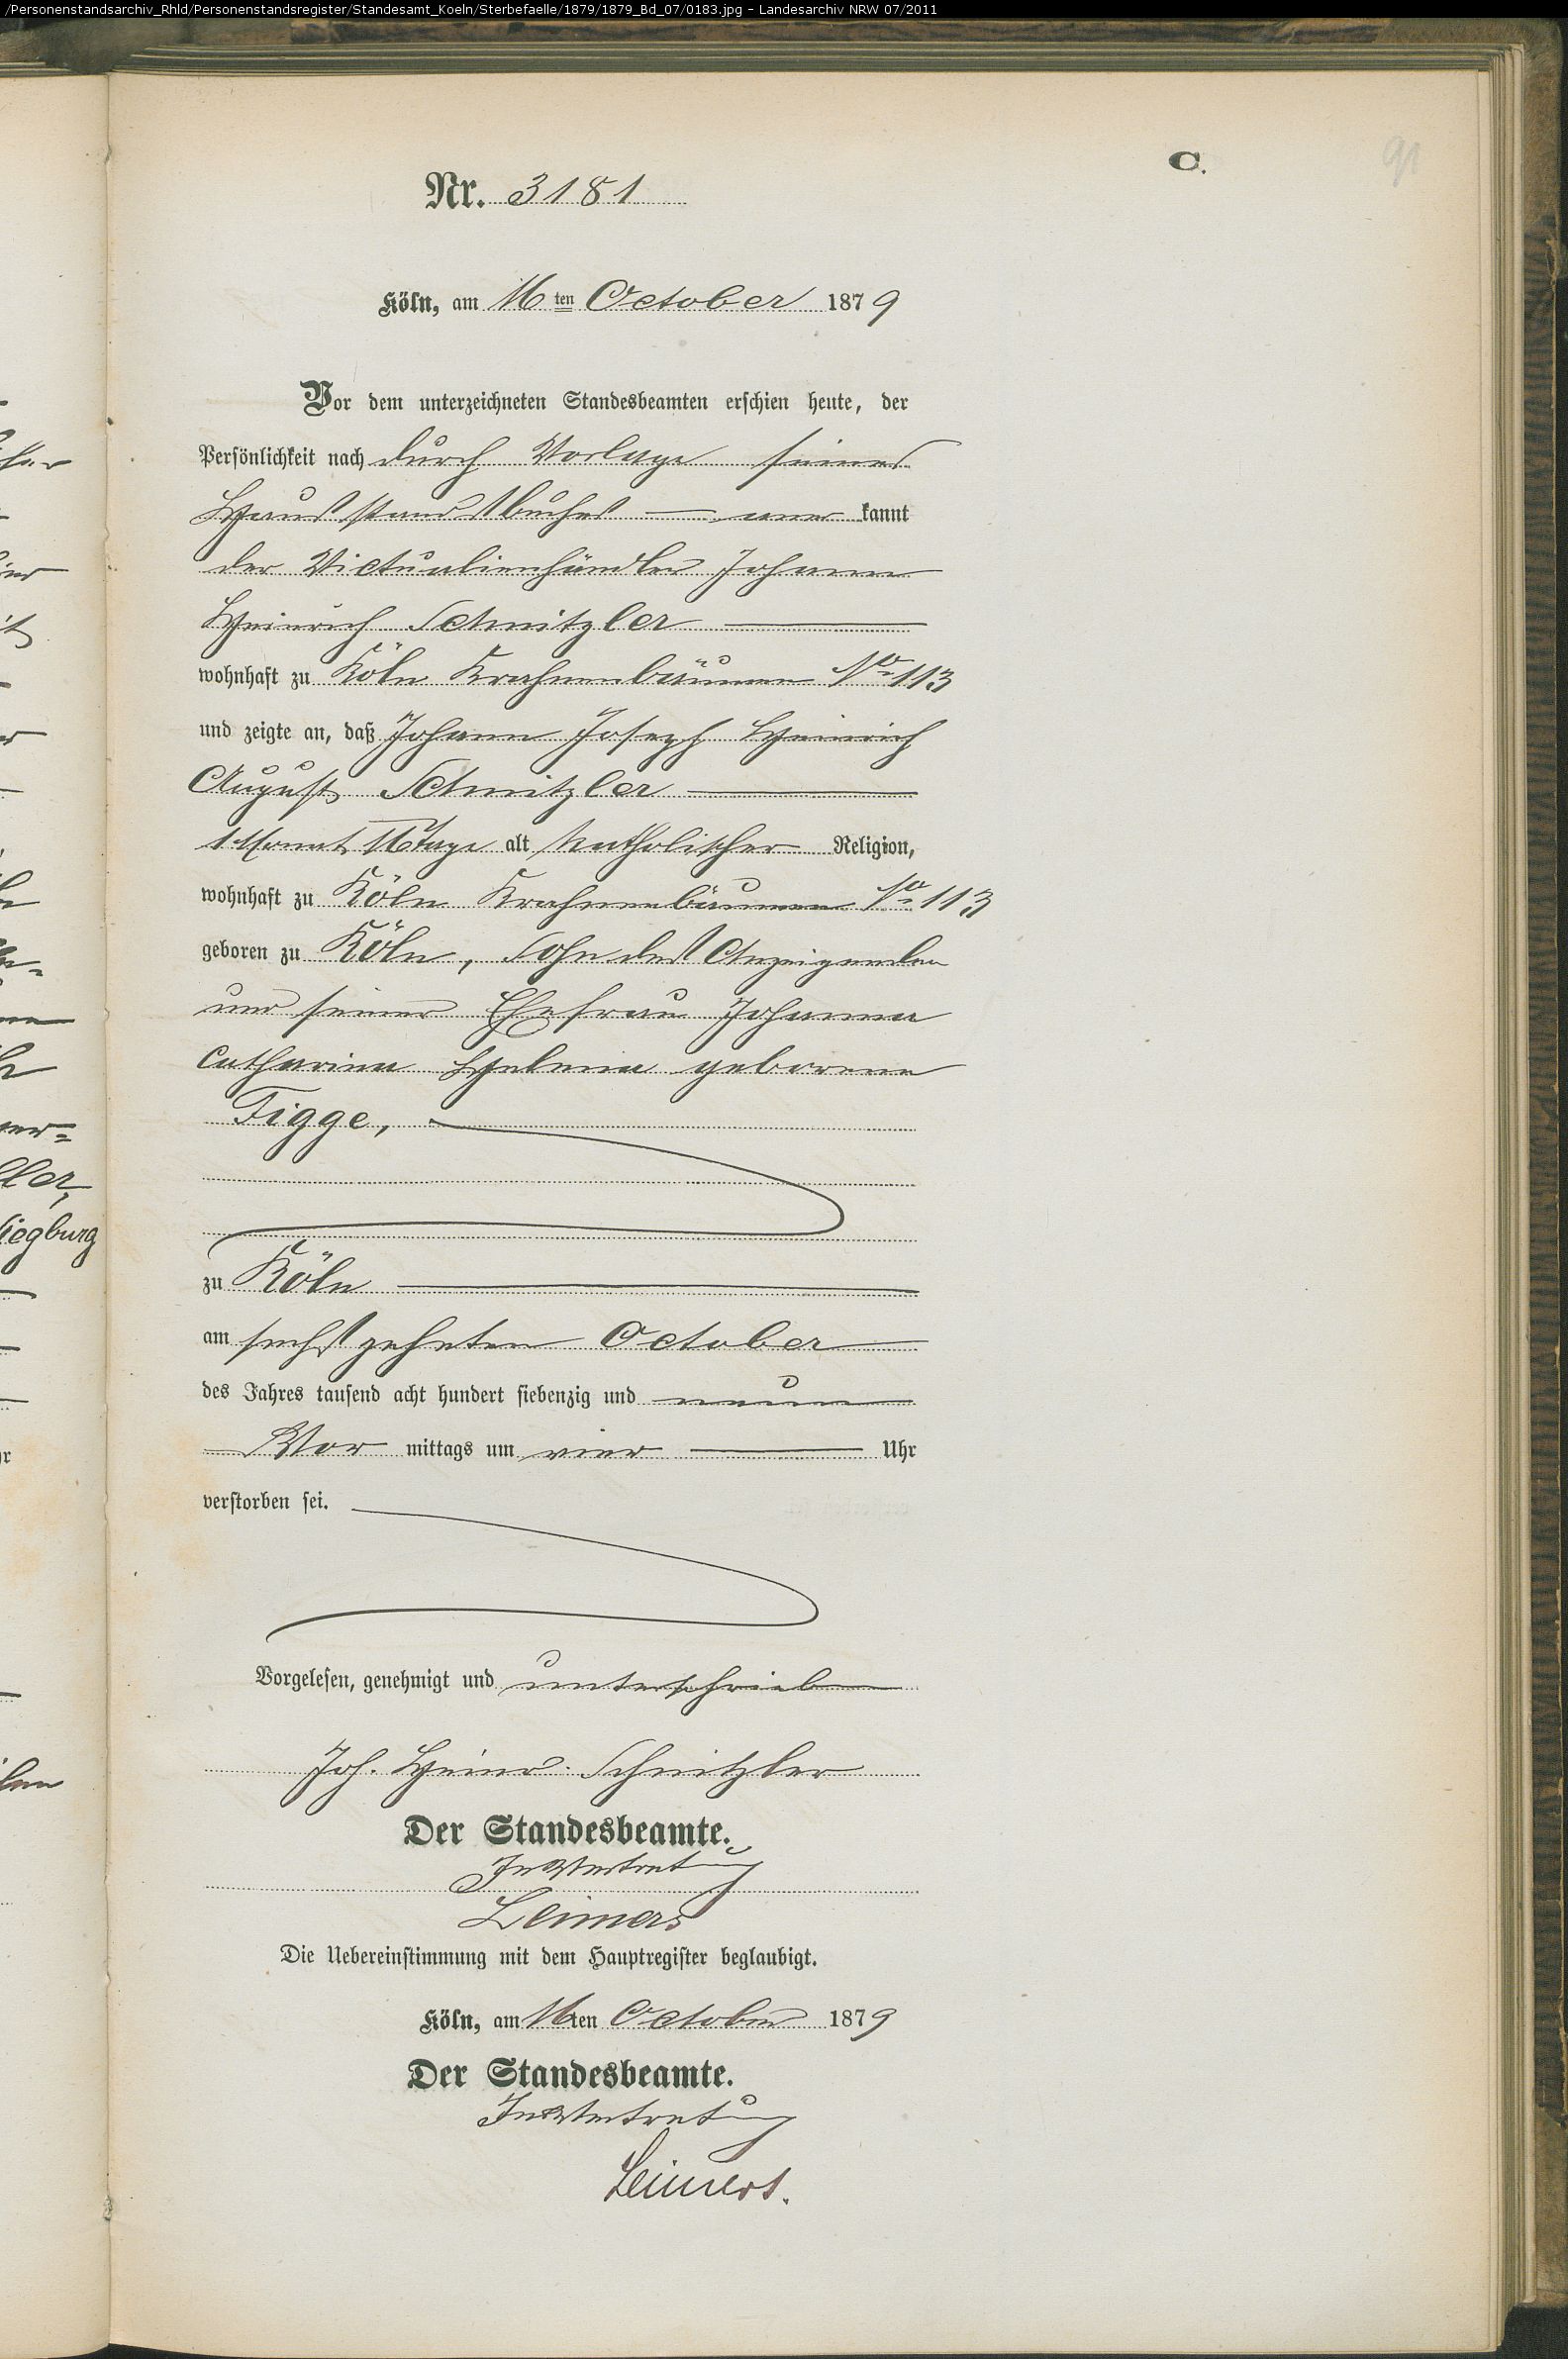 /Personenstandsarchiv_Rhld/Personenstandsregister/Standesamt_Koeln/Sterbefaelle/1879/1879_Bd_07/0183.jpg - Landesarchiv NRW 07/2011
C.
91
Nr. 3181
Köln, am 16ten October 1879
Vor dem unterzeichneten Standesbeamten erschien heute, der
Persönlichkeit nach durch Vorlage seines
Hausstandsbuches — aner kannt
der Victualienhändler Johann
Heinrich Schnitzler —
wohnhaft zu Köln Krahnenbäumen No 113
und zeigte an, daß Johann Joseph Heinrich
August Schnitzler —
1 Monat 16 Tage alt katholischer Religion,
wohnhaft zu Köln Krahnenbäumen No 113
geboren zu Köln, Sohn des Anzeigenden
und seiner Ehefrau Johanna
Catharina Helena geborene
Figge,
zu Köln —
am sechszehnten October
des Jahres tausend acht hundert siebenzig und neun
Vor mittags um vier — Uhr
verstorben sei.
Vorgelesen, genehmigt und unterschrieben
Joh. Heinr. Schnitzler
Der Standesbeamte.
In Vertretung
Leimers
Die Uebereinstimmung mit dem Hauptregister beglaubigt.
Köln, am 16ten October 1879
Der Standesbeamte.
In Vertretung
Leimers.
Siegburg